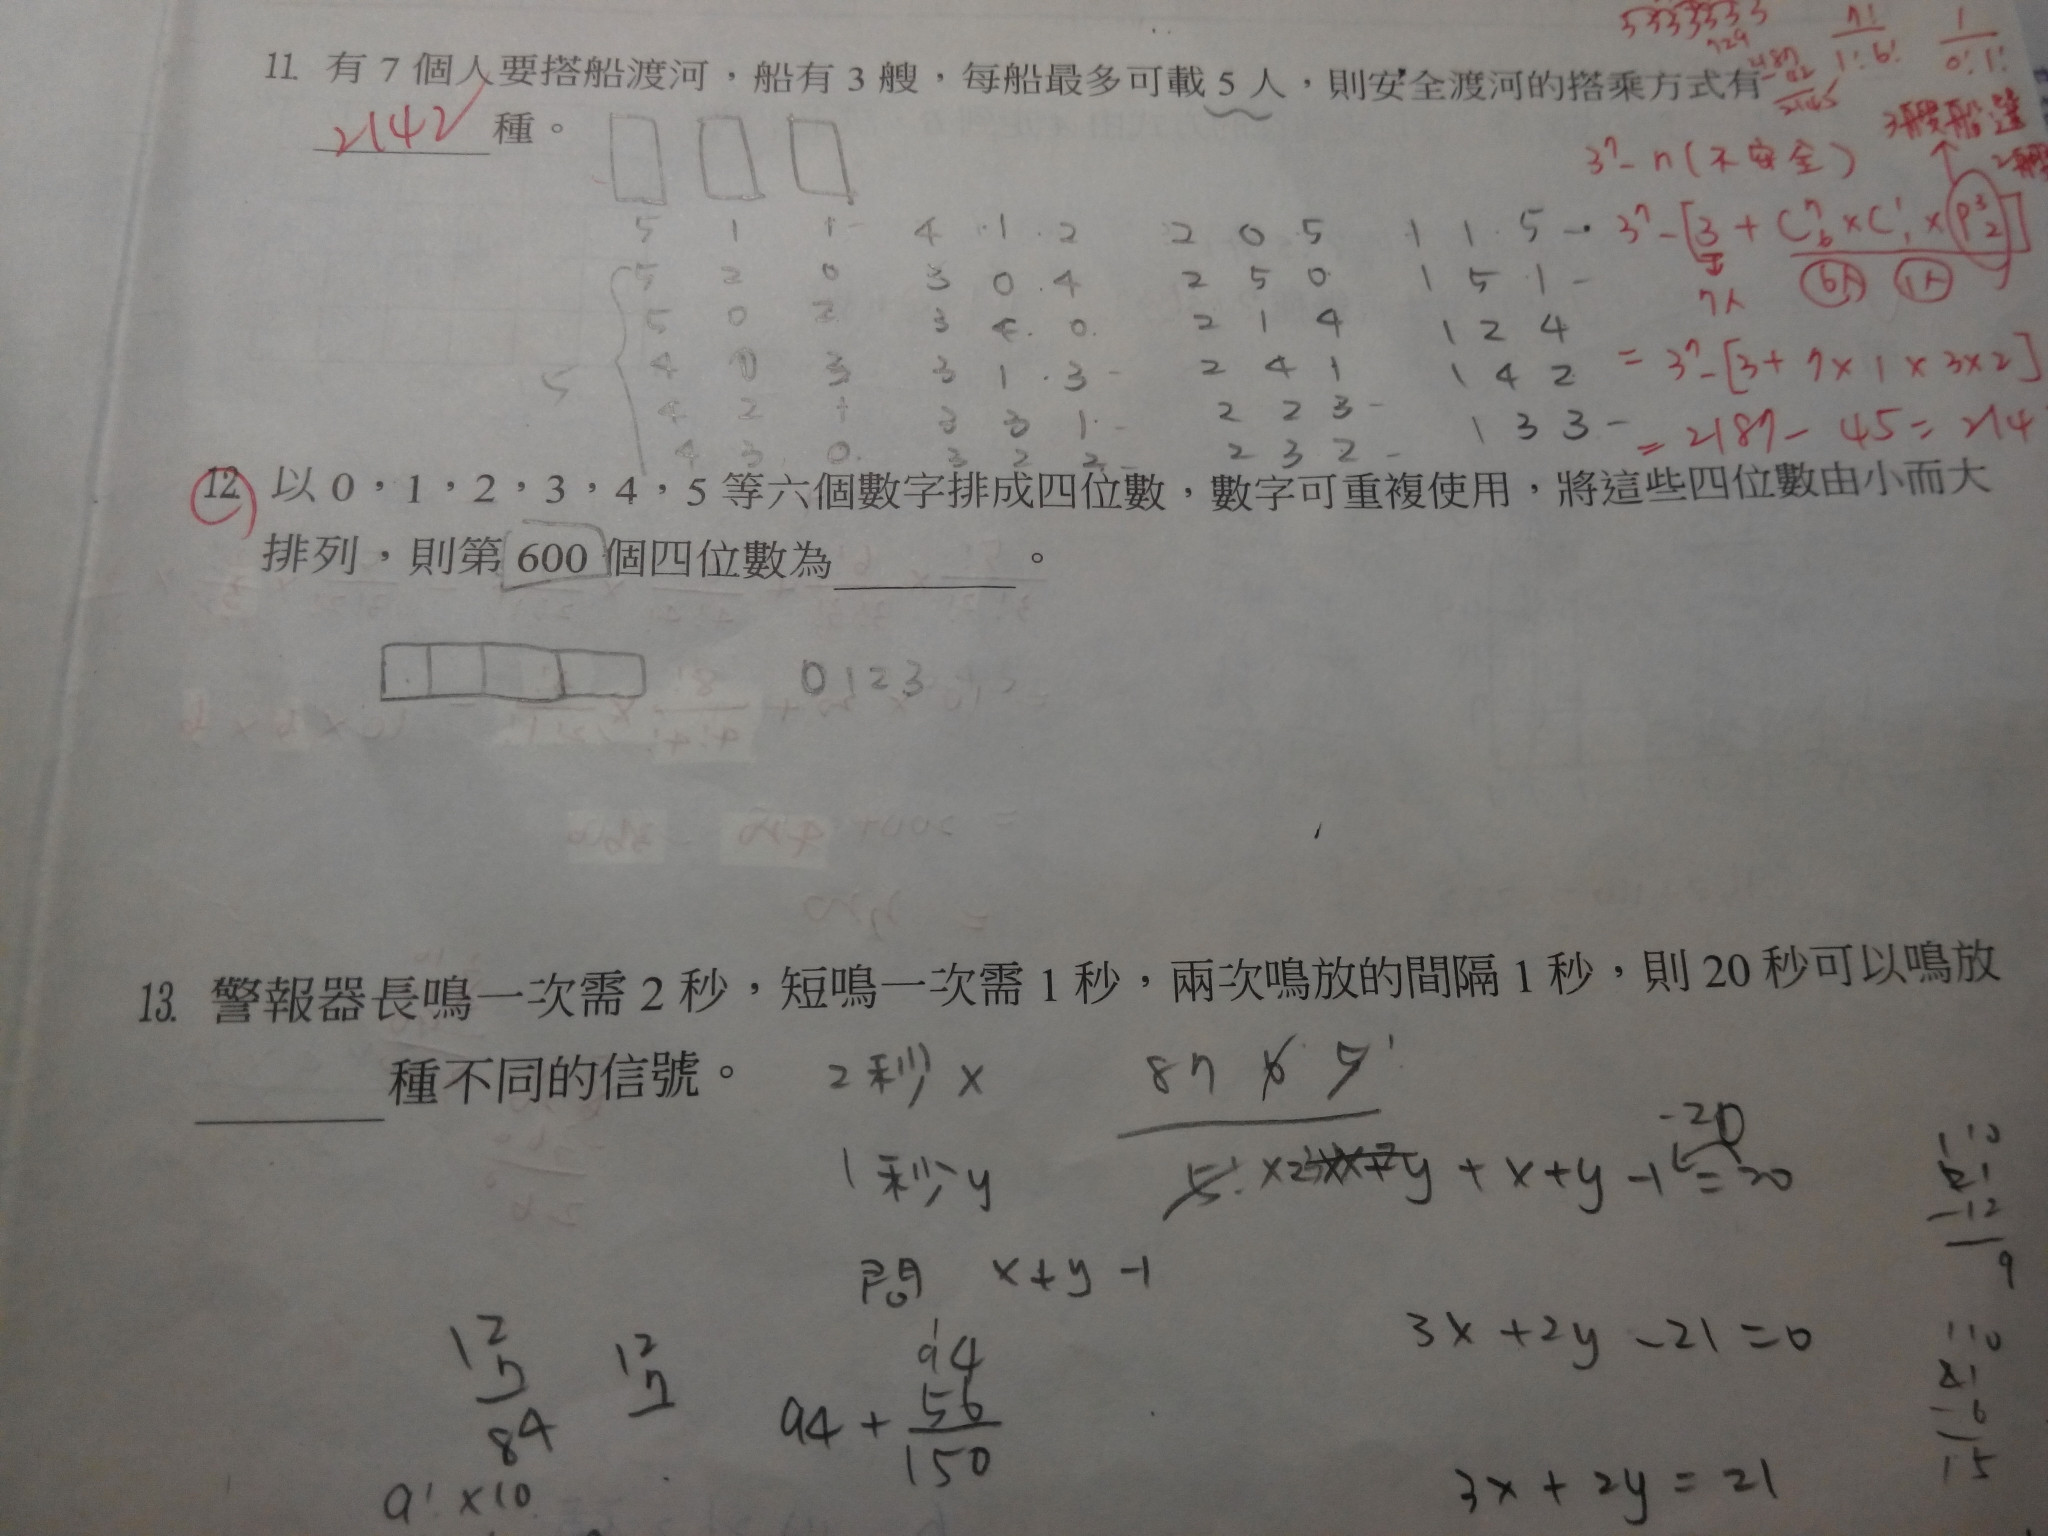 11. 有 7 個人要搭船渡河，船有 3 艘，每船最多可載 5 人，則安全渡河的搭乘方式有
2142 種。
3⁷-n(不安全)
5 1 1 4 1 2 2 0 5 1 1 5
3⁷-[3 + C⁷₆ × C¹₁ × P³₂]
7人 6人 1人
5 2 0 3 0 4 2 5 0 1 5 1
5 0 2 3 4 0 2 1 4 1 2 4
4 0 3 3 1 3 2 4 1 1 4 2
= 3⁷-[3+7×1×3×2]
4 2 1 3 3 1 2 2 3 1 3 3
= 2187-45=214
4 3 0 3 2 2 2 3 2
12. 以 0，1，2，3，4，5 等六個數字排成四位數，數字可重複使用，將這些四位數由小而大
排列，則第 600 個四位數為 。
0123
13. 警報器長鳴一次需 2 秒，短鳴一次需 1 秒，兩次鳴放的間隔 1 秒，則 20 秒可以鳴放
種不同的信號。
2秒 x
1秒 y
+ x+y-1=20
-20
間 x+y-1
21
-12
9
3x+2y-21=0
12
7
84
12
7
94+
94
56
150
21
-6
15
9!×10
3x+2y=21